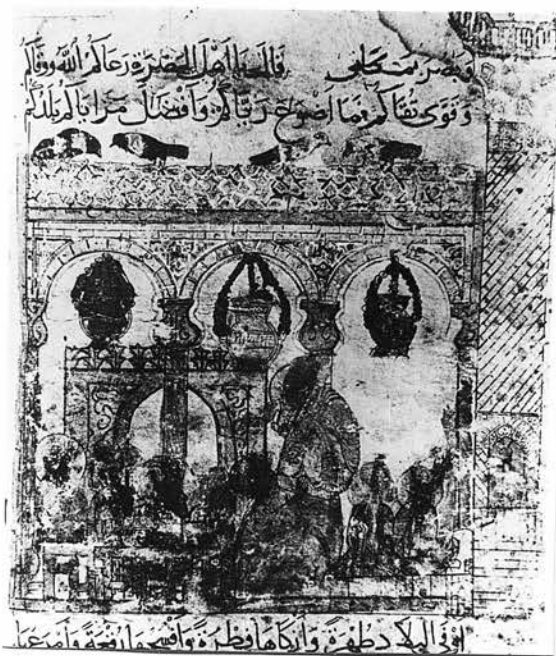 قال يا اهل البصرة رعاكم الله ووقاكم
وقوى تقاكم فما اضوع رياكم وافضل مزاياكم بلدكم
اوفى البلاد طهرة وازكاها فطرة وافسحها رقعة وامرعها